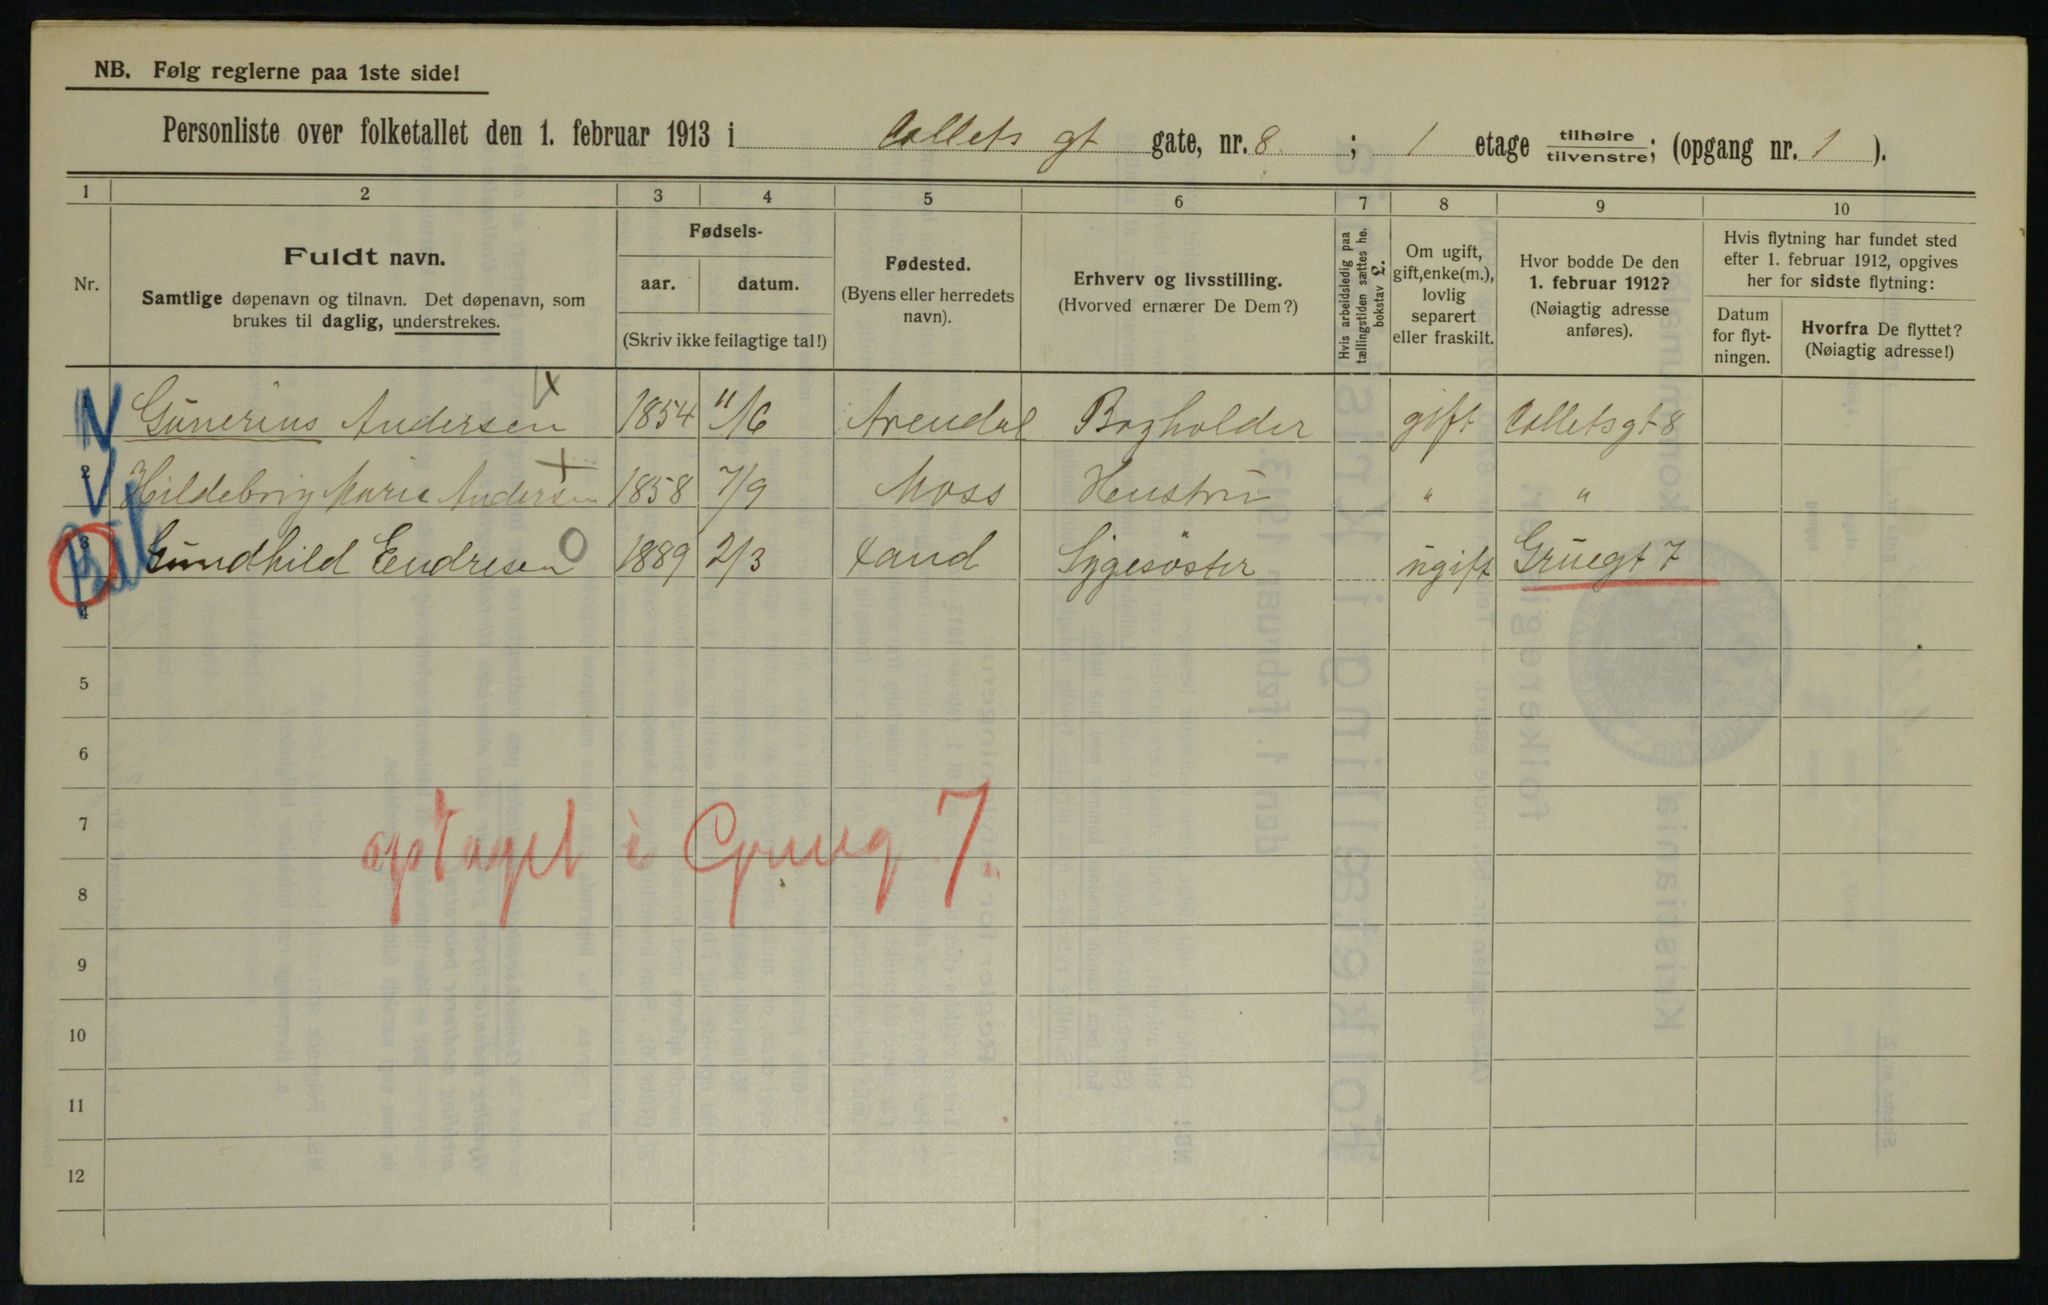 NB. Følg reglerne paa 1ste side!
Personliste over folketallet den 1. februar 1913 i Collets gt gate, nr. 8 ; 1 etage tilhøire / tilvenstre; (opgang nr. 1 ).
1 2 3 4 5 6 7 8 9 10
Nr.
Fuldt navn.
Samtlige døpenavn og tilnavn. Det døpenavn, som
brukes til daglig, understrekes.
Fødsels-
aar. datum.
(Skriv ikke feilagtige tal!)
Fødested.
(Byens eller herredets
navn).
Erhverv og livsstilling.
(Hvorved ernærer De Dem?)
Hvis arbeidsledig paa
tællingstiden sættes he.
bokstav L.
Om ugift,
gift, enke(m.),
lovlig
separert
eller fraskilt.
Hvor bodde De den
1. februar 1912?
(Nøiagtig adresse
anføres).
Hvis flytning har fundet sted
efter 1. februar 1912, opgives
her for sidste flytning:
Datum
for flyt-
ningen.
Hvorfra De flyttet?
(Nøiagtig adresse!)
Gunerius Andersen 1854 11/6 Arendal Bogholder gift Colletsgt 8
2 Hildeborg Marie Andersen 1858 7/9 Moss Hustru " "
3 Gundhild Endresen 0 1889 2/3 Sand Sygesøster ugift Gruegt 7
4
5
6
7
optaget i Grueg 7.
8
9
10
11
12